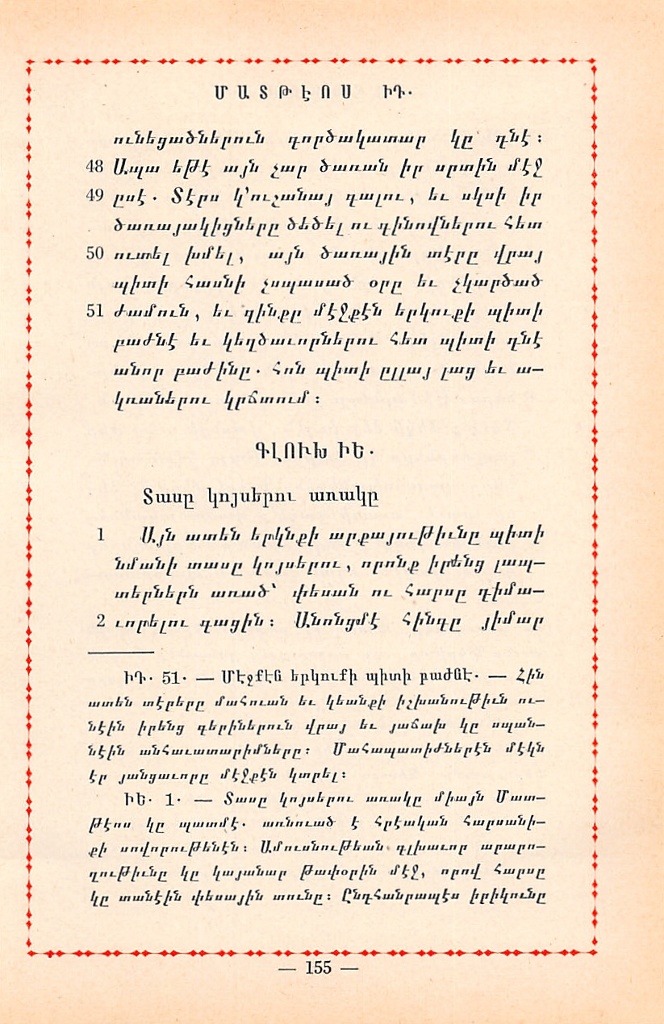 ՄԱՏԹԷՈՍ ԻԴ.
ունեցածներուն գործակատար կը դնէ :
48 Ապա եթէ այն չար ծառան իր սրտին մէջ
49 ըսէ. Տէրս կ՚ուշանայ գալու, եւ սկսի իր
ծառայակիցները ծեծել ու գինովներու հետ
50 ուտել խմել, այն ծառային տէրը վրայ
պիտի հասնի չսպասած օրը եւ չկարծած
51 ժամուն, եւ զինքը մէջքէն երկուքի պիտի
բաժնէ եւ կեղծաւորներու հետ պիտի դնէ
անոր բաժինը. հոն պիտի ըլլայ լաց եւ ա-
կռաներու կրճտում :
ԳԼՈՒԽ ԻԵ.
Տասը կոյսերու առակը
1 Այն ատեն երկնքի արքայութիւնը պիտի
նմանի տասը կոյսերու, որոնք իրենց լապ-
տերներն առած՝ փեսան ու հարսը դիմա-
2 ւորելու գացին : Անոնցմէ հինգը յիմար
ԻԴ. 51. — Մէջքէն երկուքի պիտի բաժնէ. — Հին
ատեն տէրերը մահուան եւ կեանքի իշխանութիւն ու-
նէին իրենց գերիներուն վրայ եւ յաճախ կը սպան-
նէին անհաւատարիմները : Մահապատիժներէն մէկն
էր յանցաւորը մէջքէն կտրել :
ԻԵ. 1. — Տասը կոյսերու առակը միայն Մատ-
թէոս կը պատմէ. առնուած է հրէական հարսանի-
քի սովորութենէն : Ամուսնութեան գլխաւոր արարո-
ղութիւնը կը կայանար թափօրին մէջ, որով հարսը
կը տանէին փեսային տունը : Ընդհանրապէս իրիկունը
— 155 —